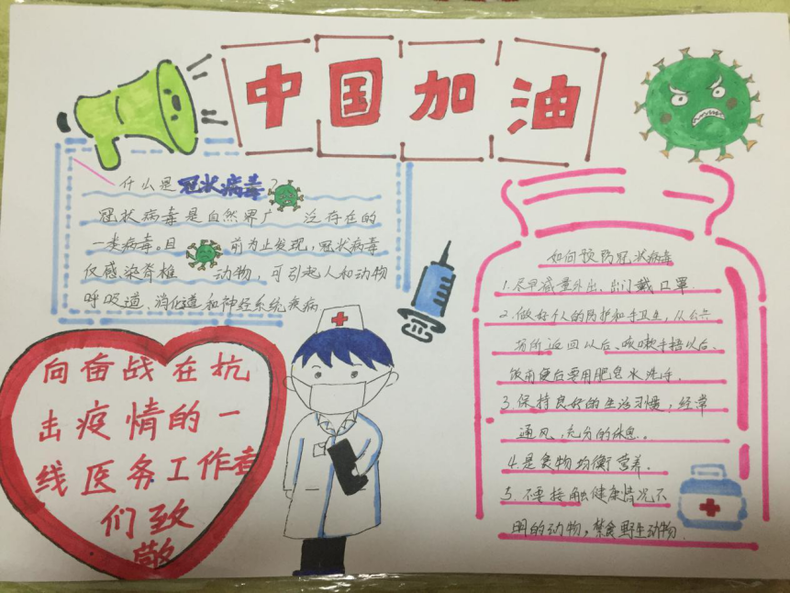 中国加油
什么是冠状病毒?
冠状病毒是自然界广泛存在的
一类病毒。目前为止发现,冠状病毒
仅感染脊椎动物,可引起人和动物
呼吸道、消化道和神经系统疾病
向奋战在抗
击疫情的一
线医务工作者
们致
敬
如何预防冠状病毒
1.尽可减量外出,出门戴口罩
2.做好个人的防护和手卫生,从公共
场所返回以后、咳嗽手捂以后、
饭前便后要用肥皂水洗手。
3.保持良好的生活习惯,经常
通风,充分的休息。
4.是食物均衡营养.
5.不要接触健康情况不
明的动物,禁食野生动物